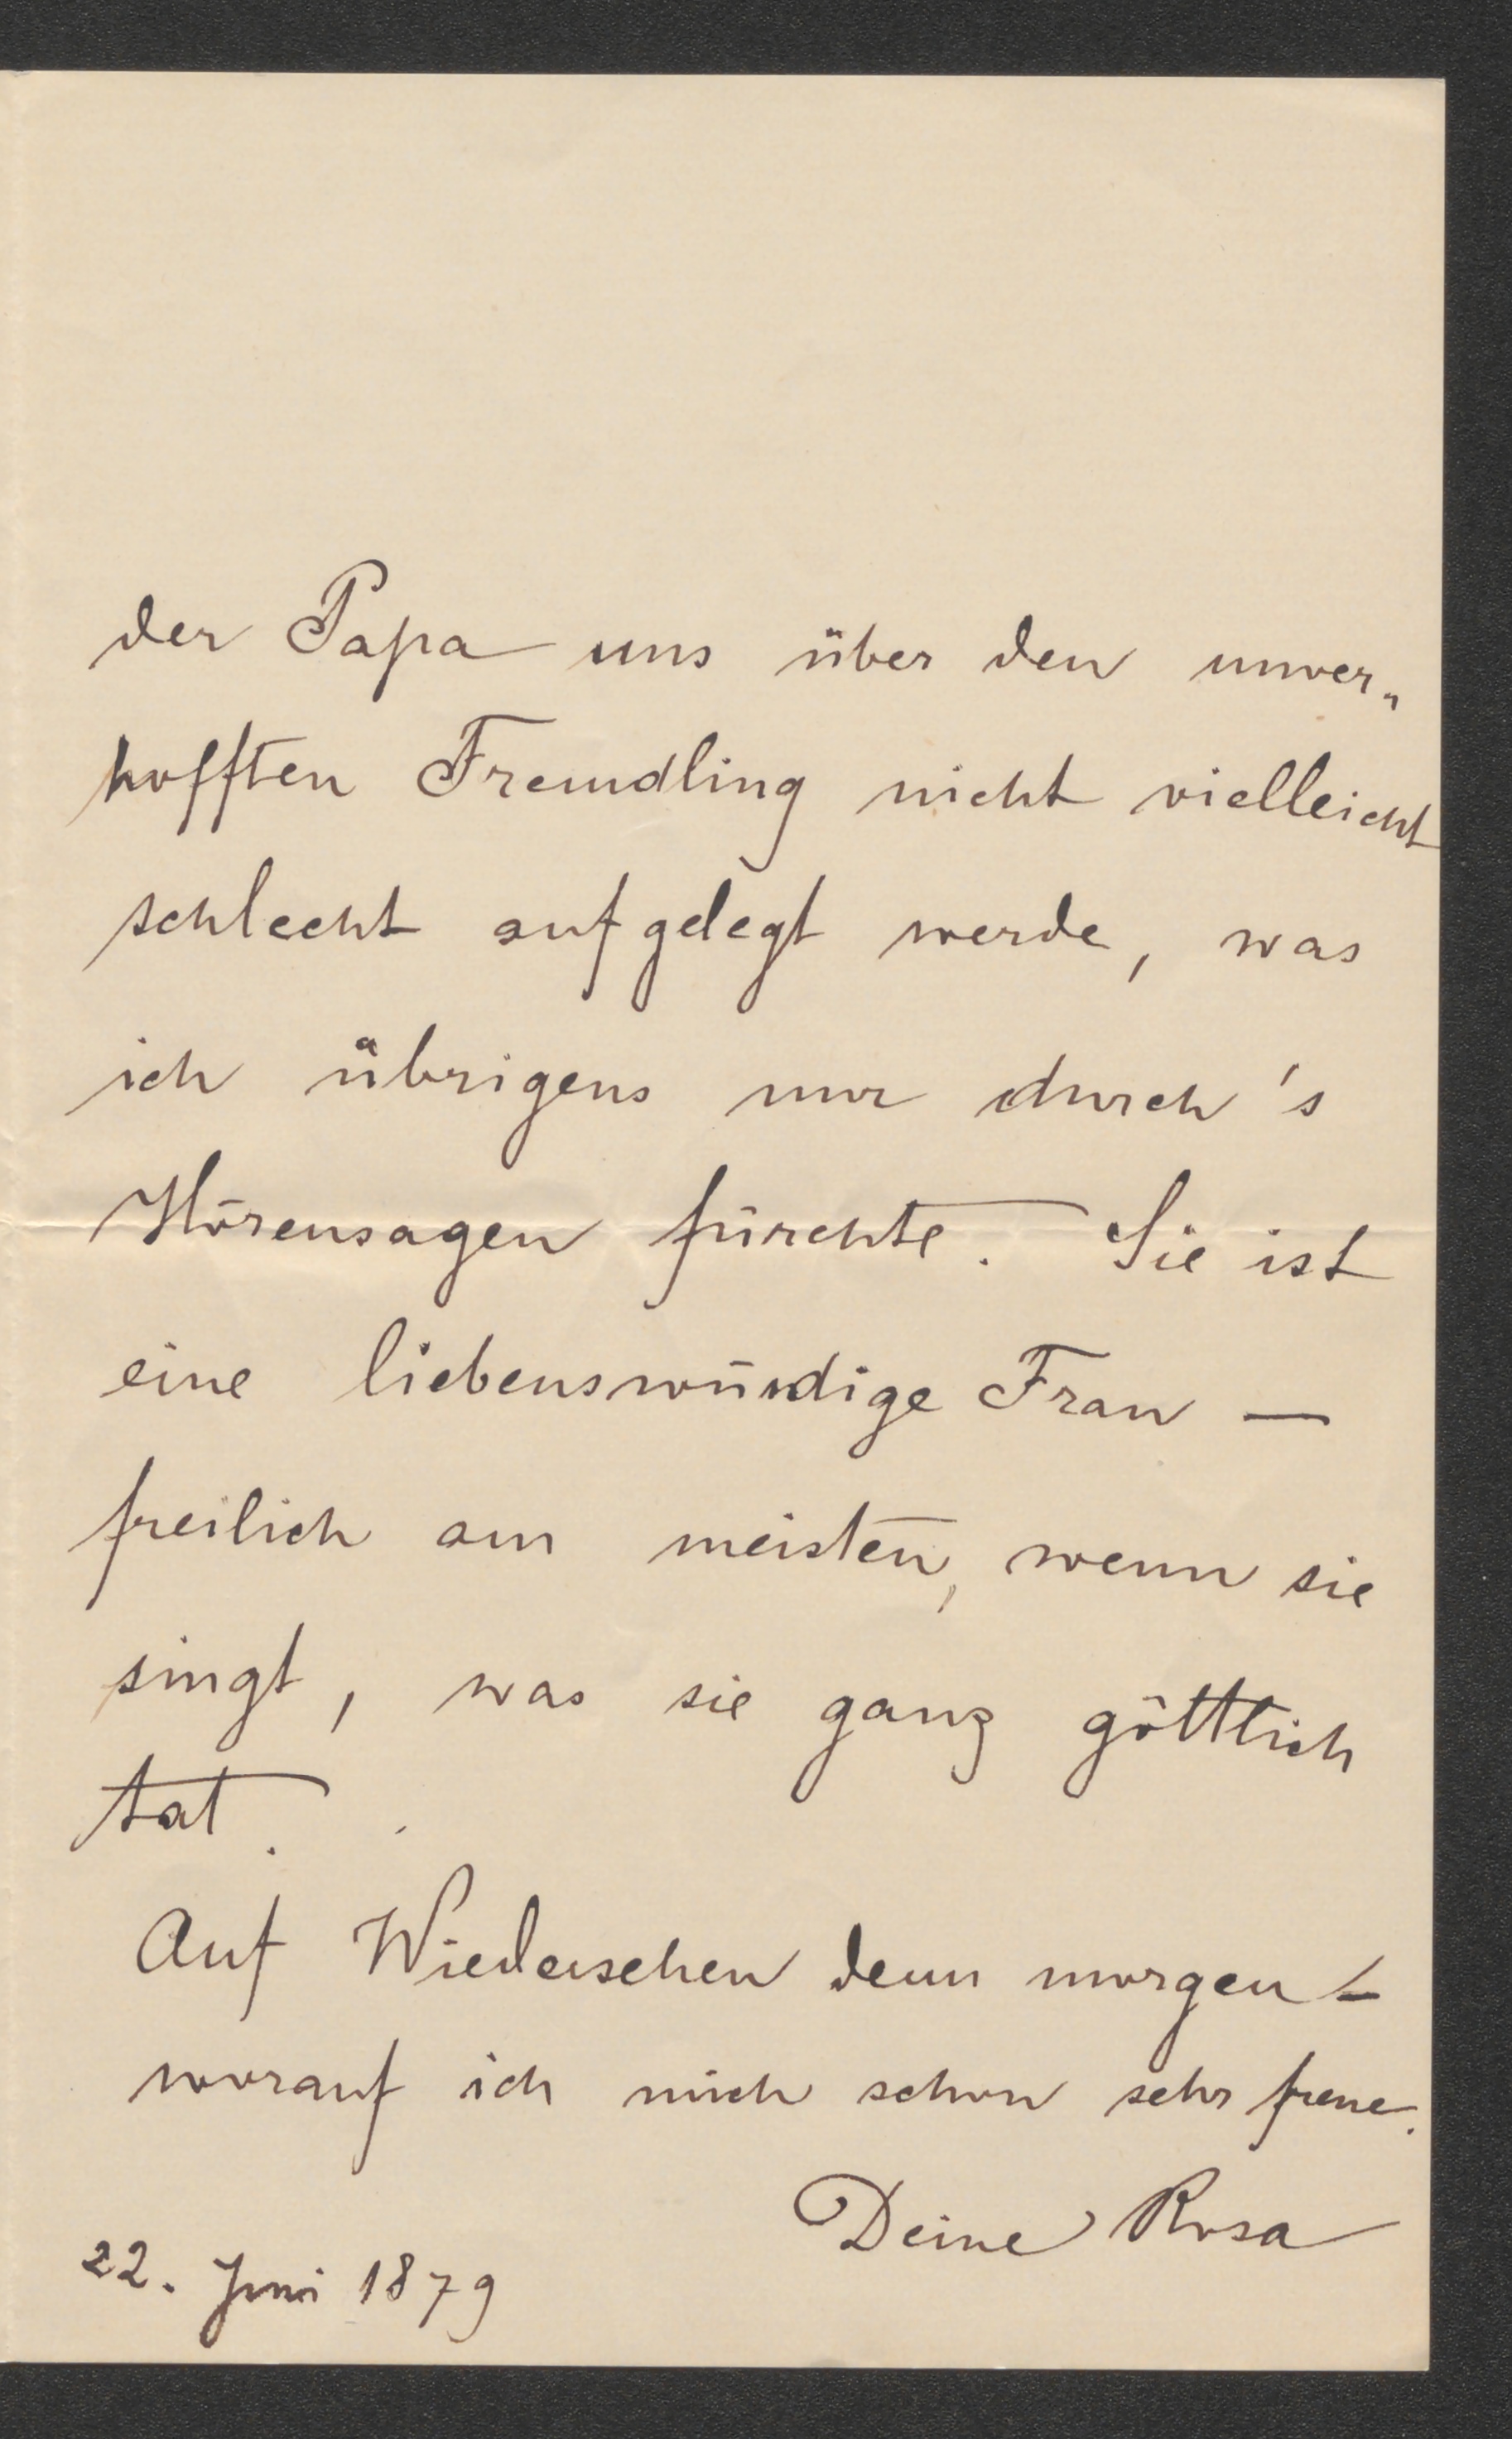 der Papa uns über den unver„
hofften Fremdling nicht vielleicht
schlecht aufgelegt werde, was
ich übrigens nur durch's
Hörensagen fürchte. Sie ist
eine liebenswürdige Frau —
freilich am meisten, wenn sie
singt, was sie ganz göttlich
tat.
Auf Wiedersehen denn morgen –
worauf ich mich schon sehr freue.
Deine Rosa
22. Juni 1879